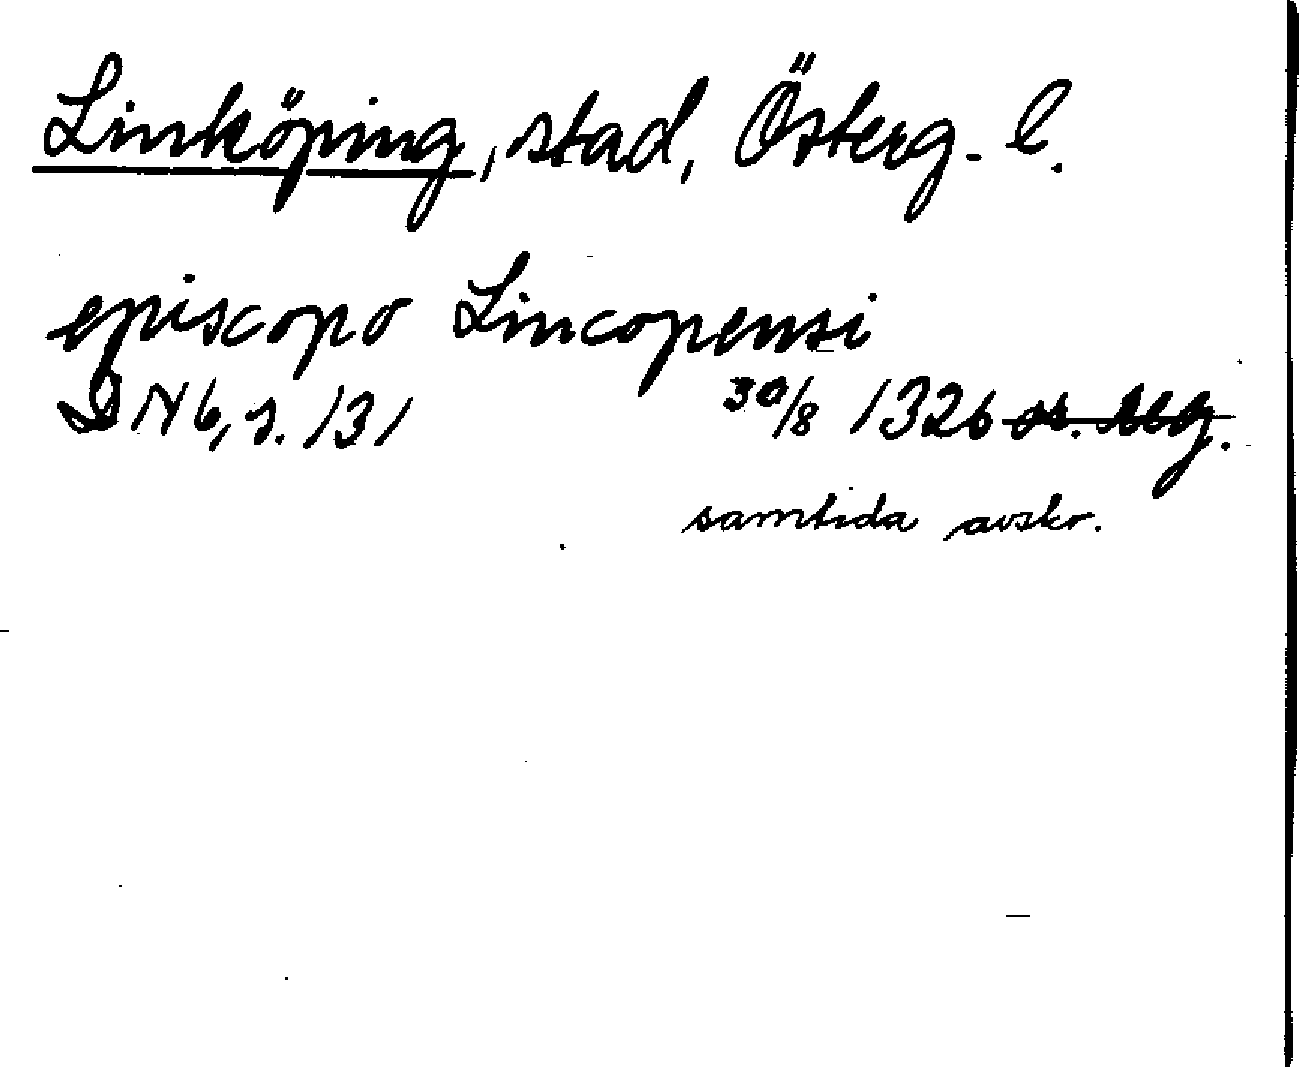 Linköping, stad, Österg. l.
episcopo Lincopensi
DN 6, s. 131 30/8 1326 or. reg.
samtida avskr.